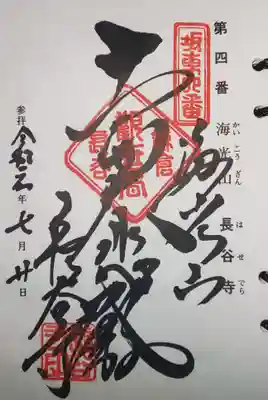 第四番 海光山 長谷寺
かいこうざん はせでら
坂東四番
海光山
鎌倉
觀世音
長谷
長谷寺
参拝 令和元年七月廿日